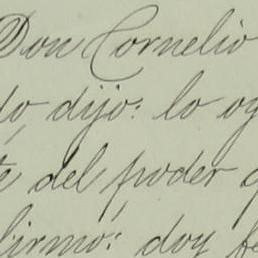 Don Cornelio
do dijo: lo og
te del poder q
firmo: doy fe